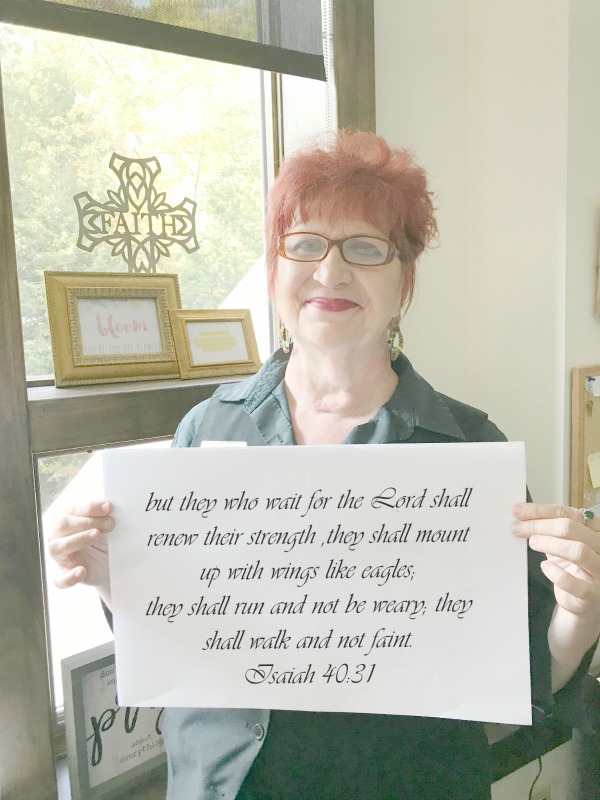 FAITH
bloom
WHERE YOU ARE PLANTED
but they who wait for the Lord shall
renew their strength ,they shall mount
up with wings like eagles;
they shall run and not be weary; they
shall walk and not faint.
Isaiah 40:31